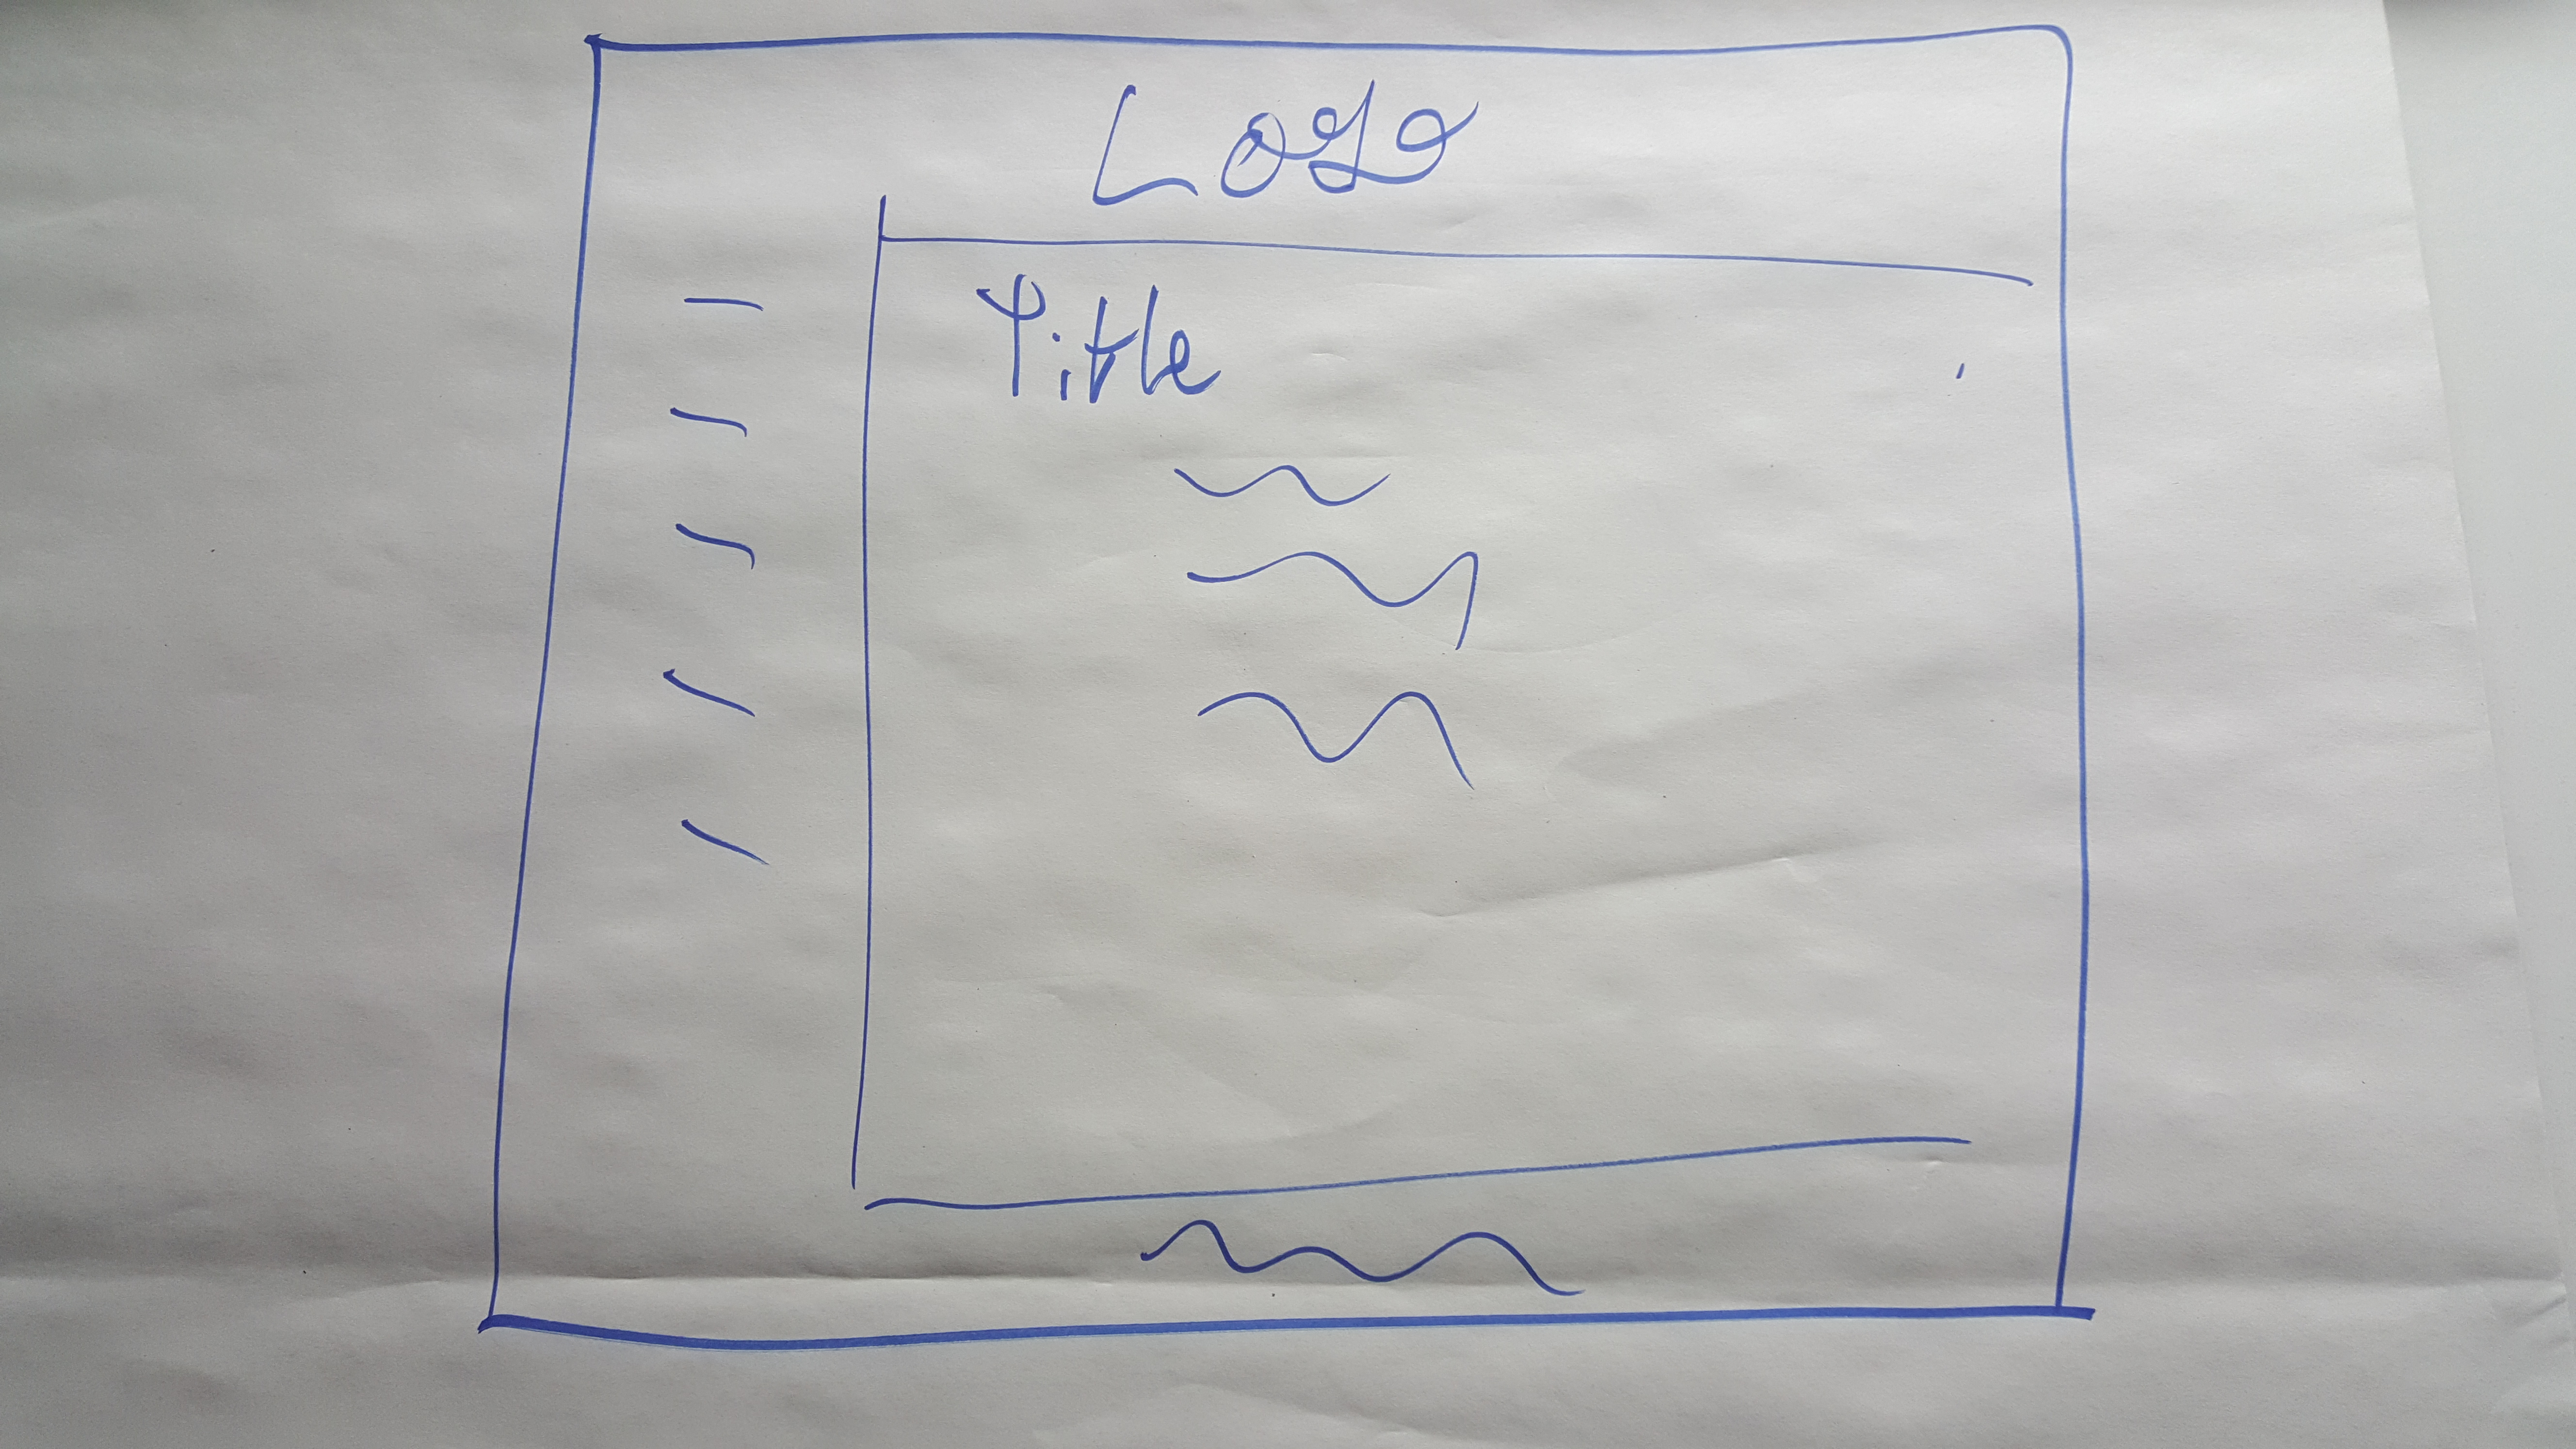 Logo
Title